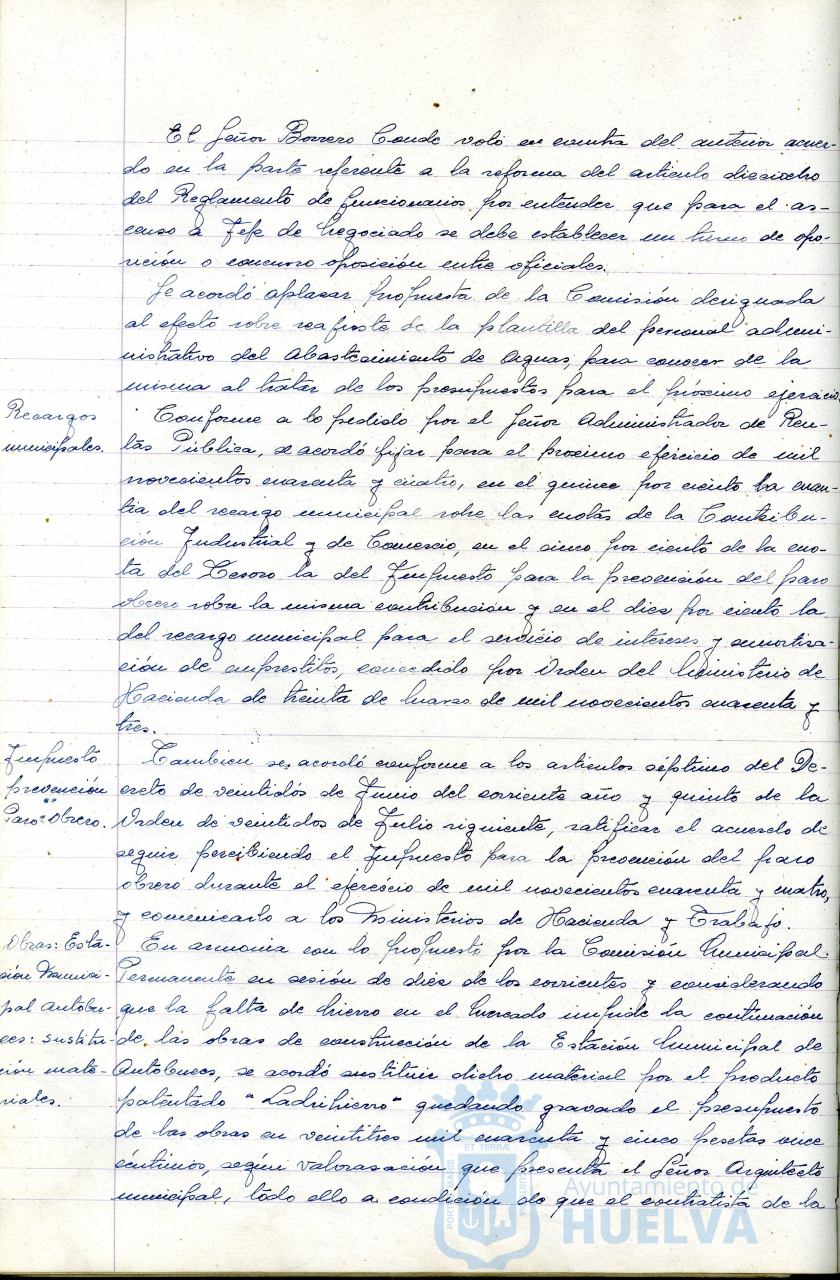 El Señor Borrero Conde votó en contra del anterior acuer-
do en la parte referente a la reforma del articulo dieciocho
del Reglamento de funcionarios por entender que para el as-
censo a Jefe de Negociado se debe establecer un turno de opo-
sición o concurso oposición entre oficiales.
Se acordó aplazar propuesta de la Comisión designada
al efecto sobre reajuste de la plantilla del personal admi-
nistrativo del Abastecimiento de Aguas, para conocer de la
misma al tratar de los presupuestos para el próximo ejercicio.
Recargos
municipales.
Conforme a lo pedido por el Señor Administrador de Ren-
tas Pública, se acordó fijar para el proximo ejercicio de mil
novecientos cuarenta y cuatro, en el quince por ciento la cuan-
tia del recargo municipal sobre las cuotas de la Contribu-
ción Industrial y de Comercio, en el cinco por ciento de la cuo-
ta del Tesoro la del Impuesto para la prevención del paro
obrero sobre la misma contribución y en el diez por ciento la
del recargo municipal para el servicio de intereses y amortiza-
ción de emprestitos, concedido por Orden del Ministerio de
Hacienda de treinta de Marzo de mil novecientos cuarenta y
tres.
Impuesto
prevención
"Paro" Obrero.
Tambien se acordó conforme a los articulos séptimo del De-
creto de veintidós de Junio del corriente año y quinto de la
Orden de veintidos de Julio siguiente, ratificar el acuerdo de
seguir percibiendo el Impuesto para la prevención del paro
obrero durante el ejercicio de mil novecientos cuarenta y cuatro,
y comunicarlo a los Ministerios de Hacienda y Trabajo.
Obras: Esta-
ción Munici-
pal Autobu-
ses: sustitu-
ción mate-
riales.
En armonia con lo propuesto por la Comisión Municipal
Permanente en sesión de diez de los corrientes y considerando
que la falta de hierro en el mercado impide la continuación
de las obras de construcción de la Estación Municipal de
Autobuses, se acordó sustituir dicho material por el producto
patentado "Ladrihierro" quedando gravado el presupuesto
de las obras en veintitres mil cuarenta y cinco pesetas once
céntimos, según valorasación que presenta el Señor Arquitecto
municipal, todo ello a condición de que el contratista de la
Ayuntamiento de
HUELVA